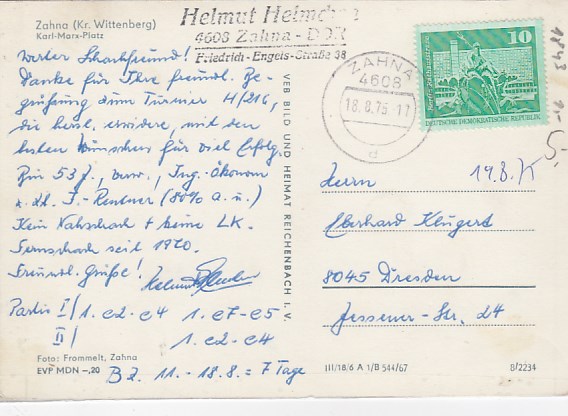 Zahna (Kr. Wittenberg)
Karl-Marx-Platz
Helmut
4608 Zahna - DDR
Friedrich-Engels-Straße 38
ZAHNA
4608
18.8.75
d
10
DEUTSCHE DEMOKRATISCHE REPUBLIK
1843
5.-
Werter Schachfreund!
Danke für Ihre freundl. Be-
grüßung zum Turnier H/216,
die herzl. erwidere, mit den
besten Wünschen für viel Erfolg.
Bin 53 J., verw., Ing.-Ökonom
z. Zt. I.-Rentner (80% a. u.)
Kein Nahschach + keine LK.
Fernschach seit 1970.
Freundl. Grüße!
Partie I/ 1. e2-e4 1. e7-e5
II/ 1. e2-e4
BZ 11.-18.8. = 7 Tage
Foto: Frommelt, Zahna
EVP MDN -,20
VEB BILD UND HEIMAT REICHENBACH I. V.
19.8.
Herrn
Eberhard Klügert
8045 Dresden
Jessener-Str. 24
III/18/6 A 1/B 544/67
8/2234